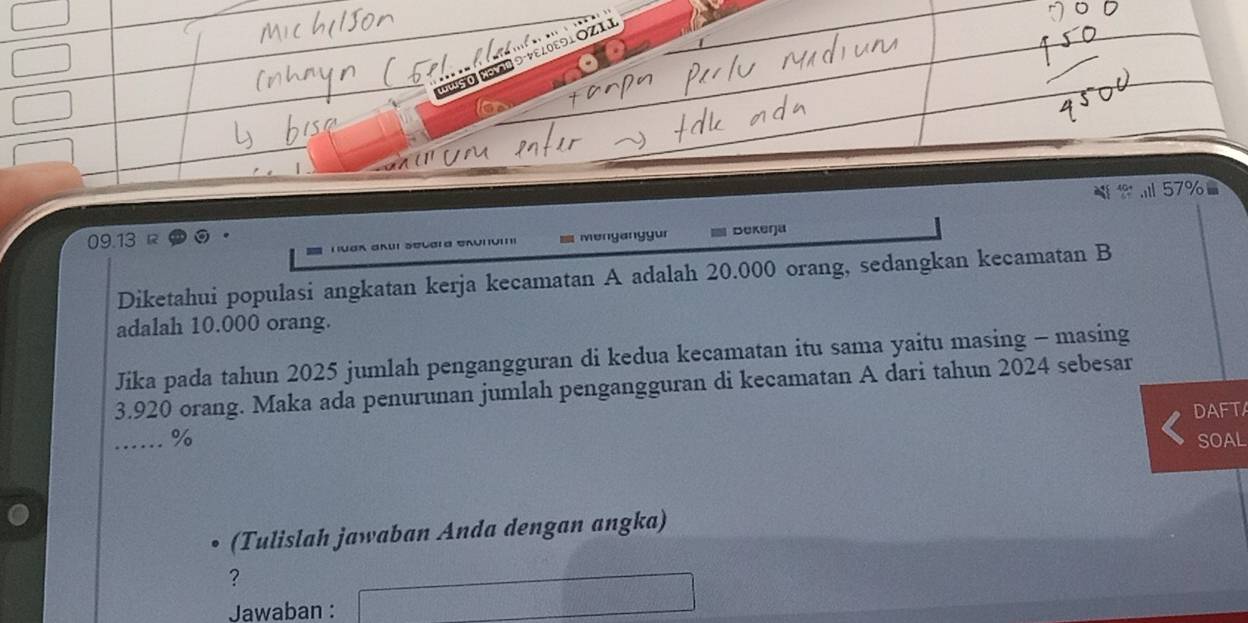 Michelson
700
150
9500
tanpa perlu medium
↳ bisa
enter → tdk ada
TIZO TG30734-G BLACK 0.5mm
09.13
57%
Tidak aktif secara ekonomi Menganggur Bekerja
Diketahui populasi angkatan kerja kecamatan A adalah 20.000 orang, sedangkan kecamatan B
adalah 10.000 orang.
Jika pada tahun 2025 jumlah pengangguran di kedua kecamatan itu sama yaitu masing – masing
3.920 orang. Maka ada penurunan jumlah pengangguran di kecamatan A dari tahun 2024 sebesar
...... %
DAFTA
SOAL
• (Tulislah jawaban Anda dengan angka)
?
Jawaban :